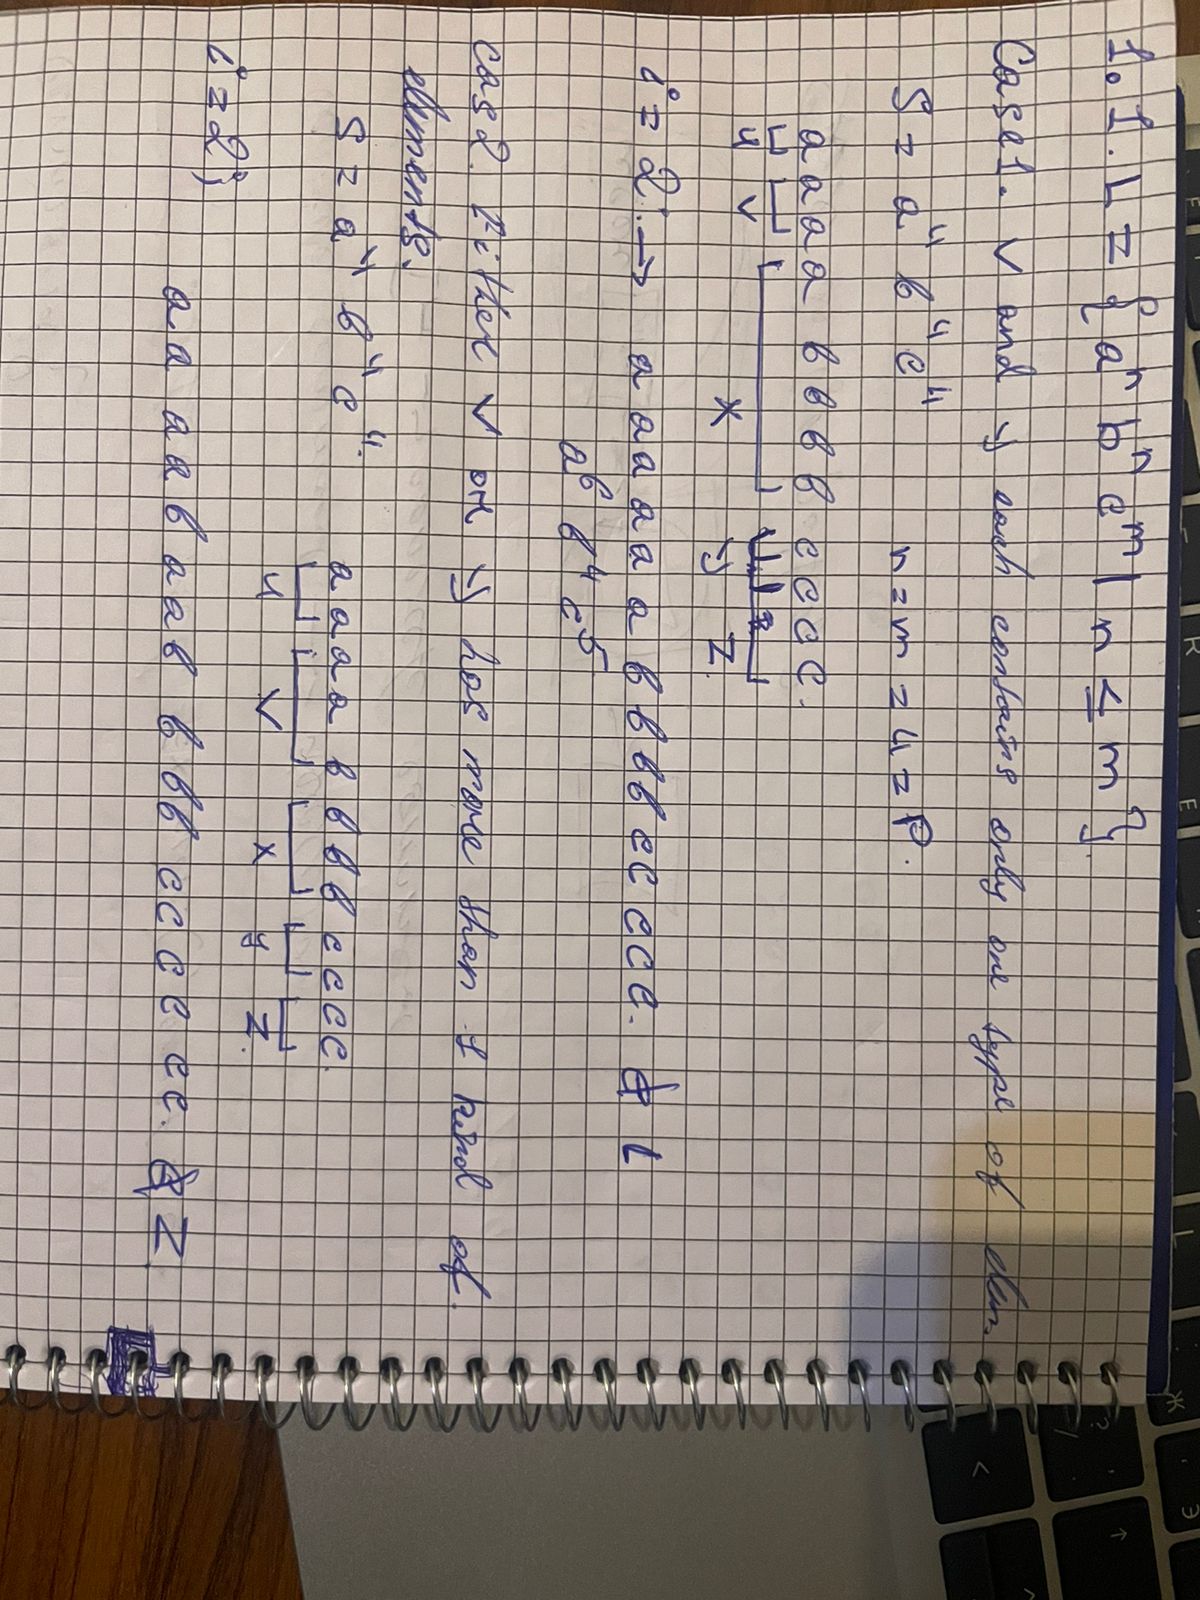 1.1. L = { aⁿ bⁿ cᵐ | n ≤ m }.
Case 1. v and y each contains only one type of elem.
S = a⁴ b⁴ c⁴ n = m = 4 = p.
aaaa bbbb cccc.
u v x y z.
i = 2. → aaaaaa bbbb ccccc. ∉ L
a⁶ b⁴ c⁵
Case 2. Either v or y has more than 1 kind of
elements.
S = a⁴ b⁴ c⁴. aaaa bbbb cccc.
u v x y z.
i = 2;
aa aab aab bbb ccccc. ∉ Z